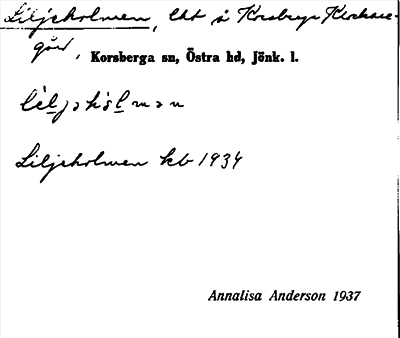 Liljeholmen, lht å Korsberga Klockare-
gård,
Korsberga sn, Östra hd, Jönk. l.
Liljeholmen kb 1934
Annalisa Anderson 1937